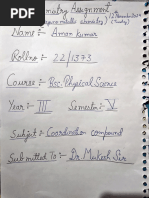 Chemistry Assignment
Name:- Aman Kumar
Rollno:- 22/1373
Course:- Bsc. Physical Science
Year:- III Semester:- V
Subject:- Coordination compound
Submitted To:- Dr Mukesh Sir